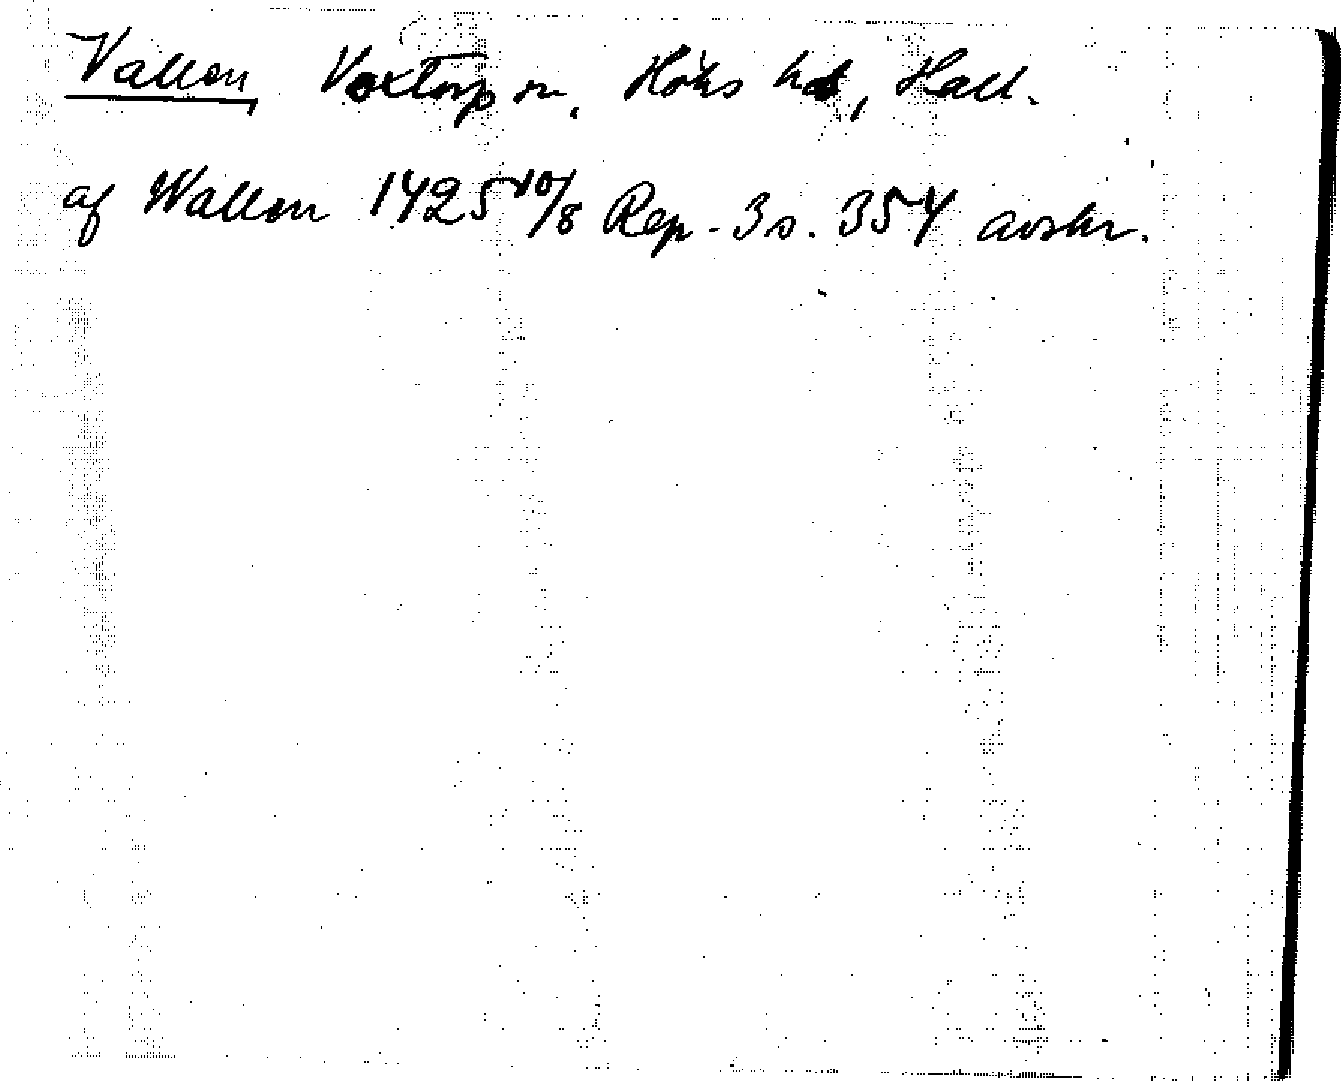 Vallen Voxtorp sn, Höks hd, Hall.
af Wallen 1425 10/8 Rep. 3 s. 354 avskr.